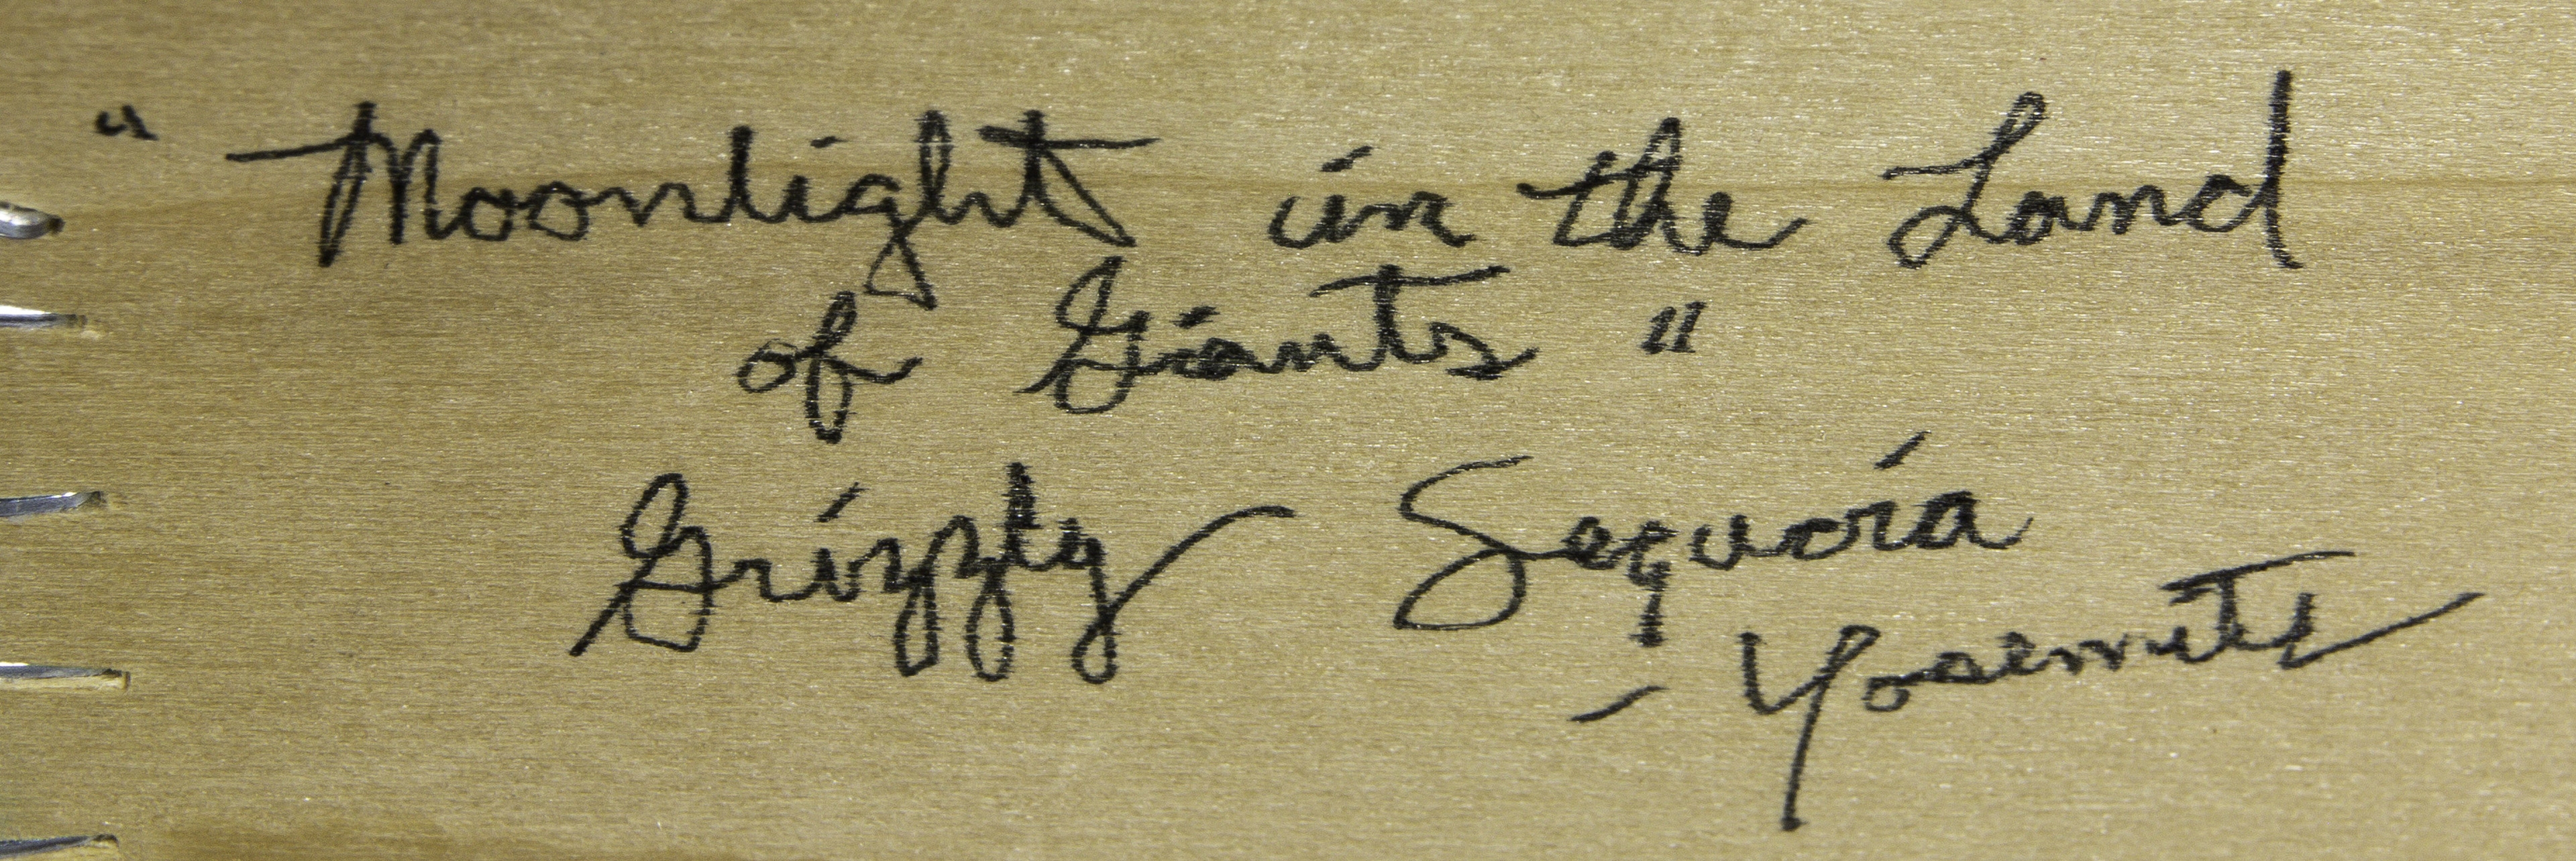 "Moonlight in the Land
of Giants"
Grizzly Sequoia
- Yosemite